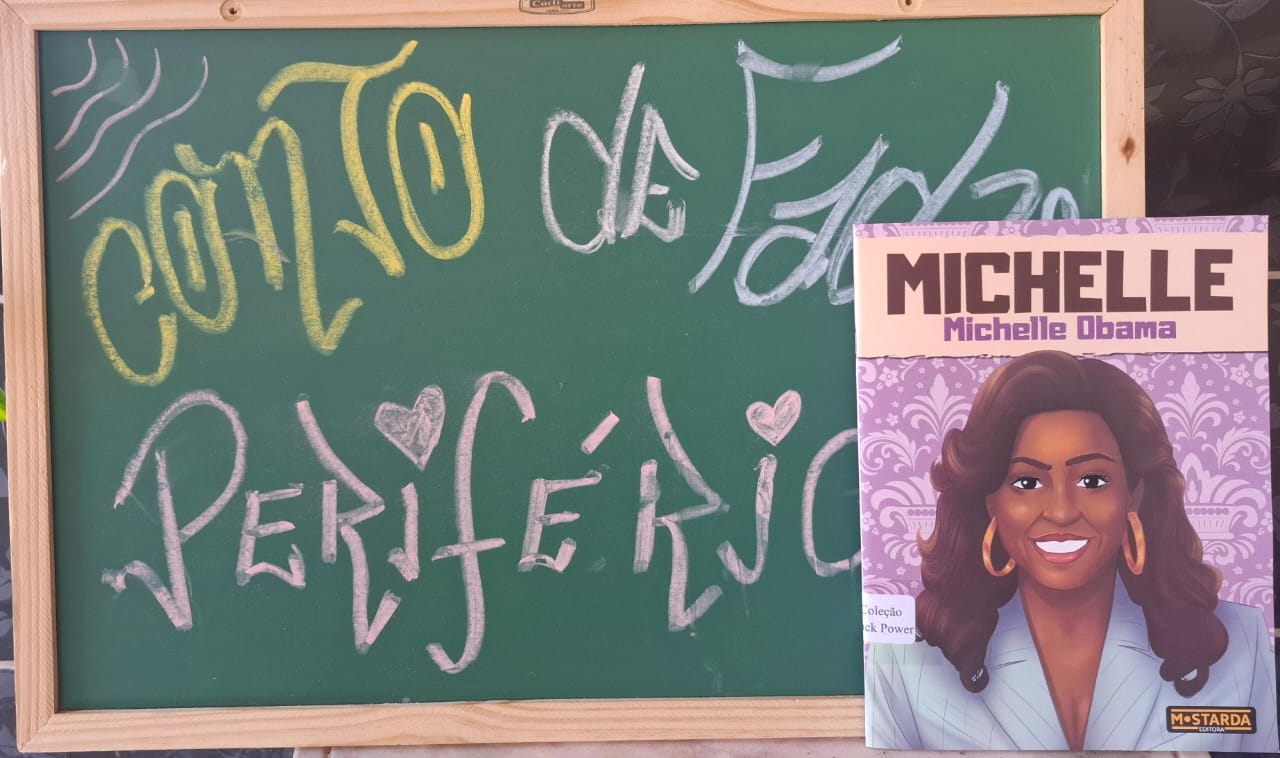 CONTO de Fadas
PERIFÉRIC
MICHELLE
Michelle Obama
Coleção
ck Power
MOSTARDA
EDITORA